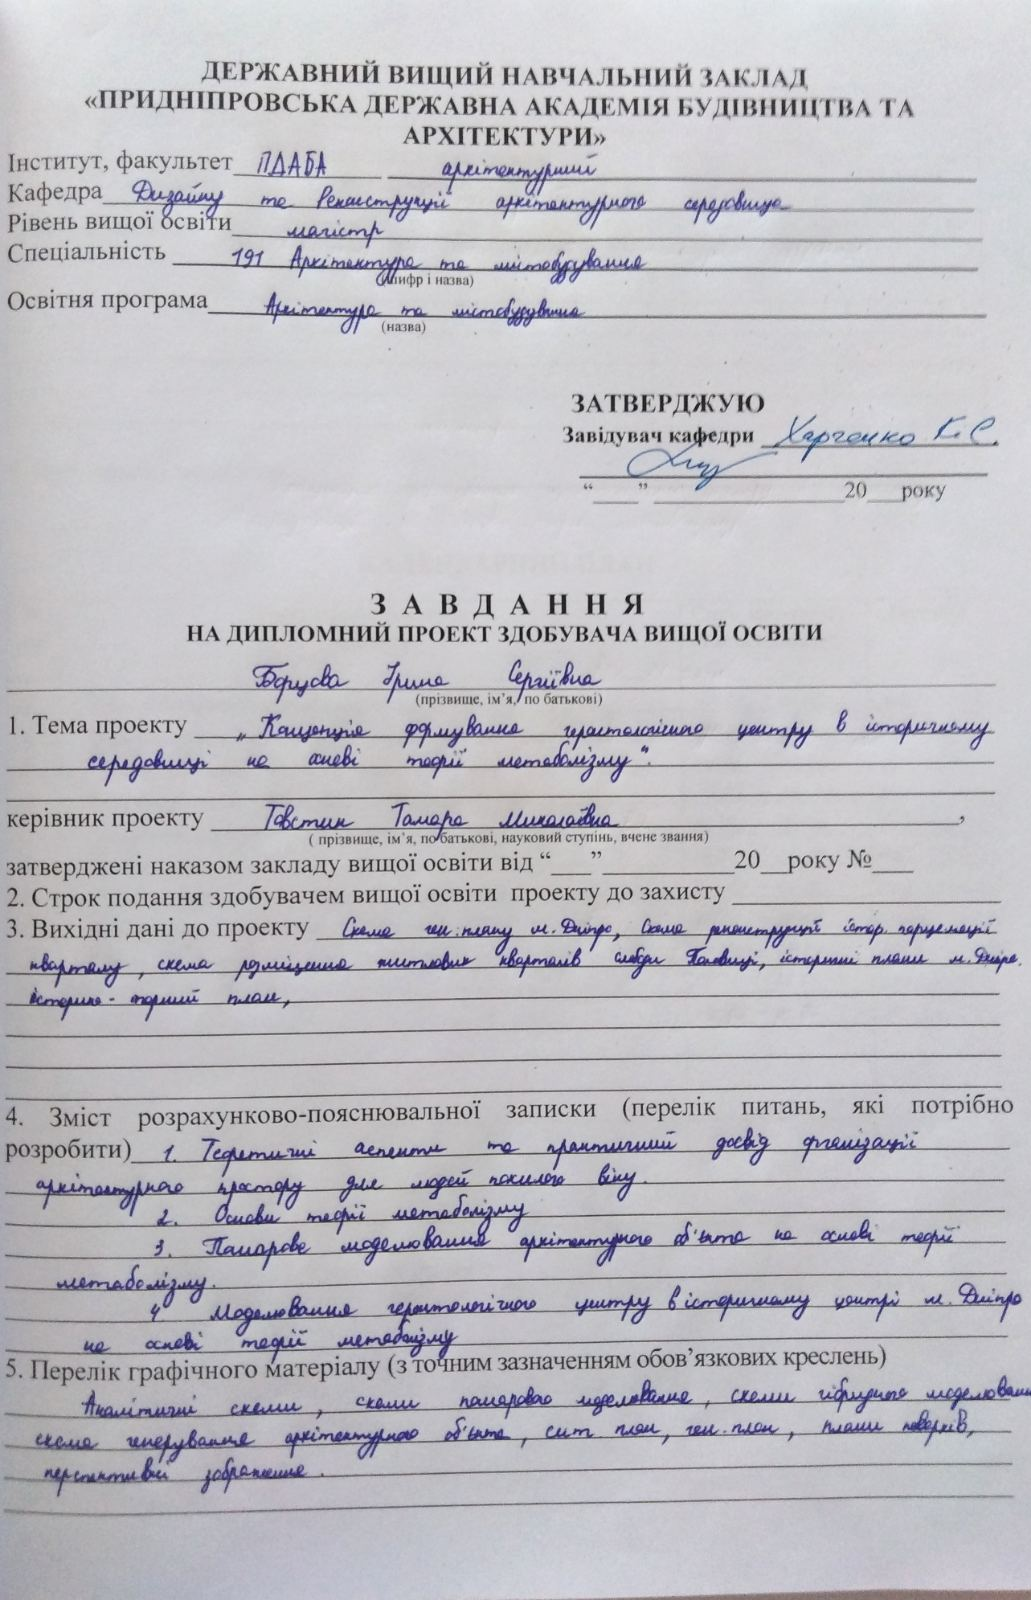 ДЕРЖАВНИЙ ВИЩИЙ НАВЧАЛЬНИЙ ЗАКЛАД
«ПРИДНІПРОВСЬКА ДЕРЖАВНА АКАДЕМІЯ БУДІВНИЦТВА ТА
АРХІТЕКТУРИ»
Інститут, факультет ПДАБА архітектурний
Кафедра Дизайну та Реконструкції архітектурного середовища
Рівень вищої освіти магістр
Спеціальність 191 Архітектура та містобудування
(шифр і назва)
Освітня програма Архітектура та містобудування
(назва)
ЗАТВЕРДЖУЮ
Завідувач кафедри Харченко К.С.
“___” ______________ 20__року
З А В Д А Н Н Я
НА ДИПЛОМНИЙ ПРОЕКТ ЗДОБУВАЧА ВИЩОЇ ОСВІТИ
Борцова Ірина Сергіївна
(прізвище, ім’я, по батькові)
1. Тема проекту „Концепція формування геронтологічного центру в історичному
середовищі на основі теорії метаболізму“.
керівник проекту Товстик Тамара Миколаївна,
( прізвище, ім’я, по батькові, науковий ступінь, вчене звання)
затверджені наказом закладу вищої освіти від “___” __________20__року №___
2. Строк подання здобувачем вищої освіти проекту до захисту
3. Вихідні дані до проекту Схема ген. плану м. Дніпро, Схема реконструкції істор. парцеляції
кварталу, схема розміщення житлових кварталів слободи Половиці, історичні плани м. Дніпра,
історико-опорний план,
4. Зміст розрахунково-пояснювальної записки (перелік питань, які потрібно
розробити) 1. Теоретичні аспекти та практичний досвід організації
архітектурного простору для людей похилого віку.
2. Основи теорії метаболізму
3. Панарове моделювання архітектурного об'єкта на основі теорії
метаболізму.
4 Моделювання геронтологічного центру в історичному центрі м. Дніпро
на основі теорії метаболізму
5. Перелік графічного матеріалу (з точним зазначенням обов’язкових креслень)
Аналітичні схеми, схеми панарового моделювання, схеми гібридного моделювання
схема генерування архітектурного об'єкта, сит план, ген. план, плани поверхів,
перспективні зображення.